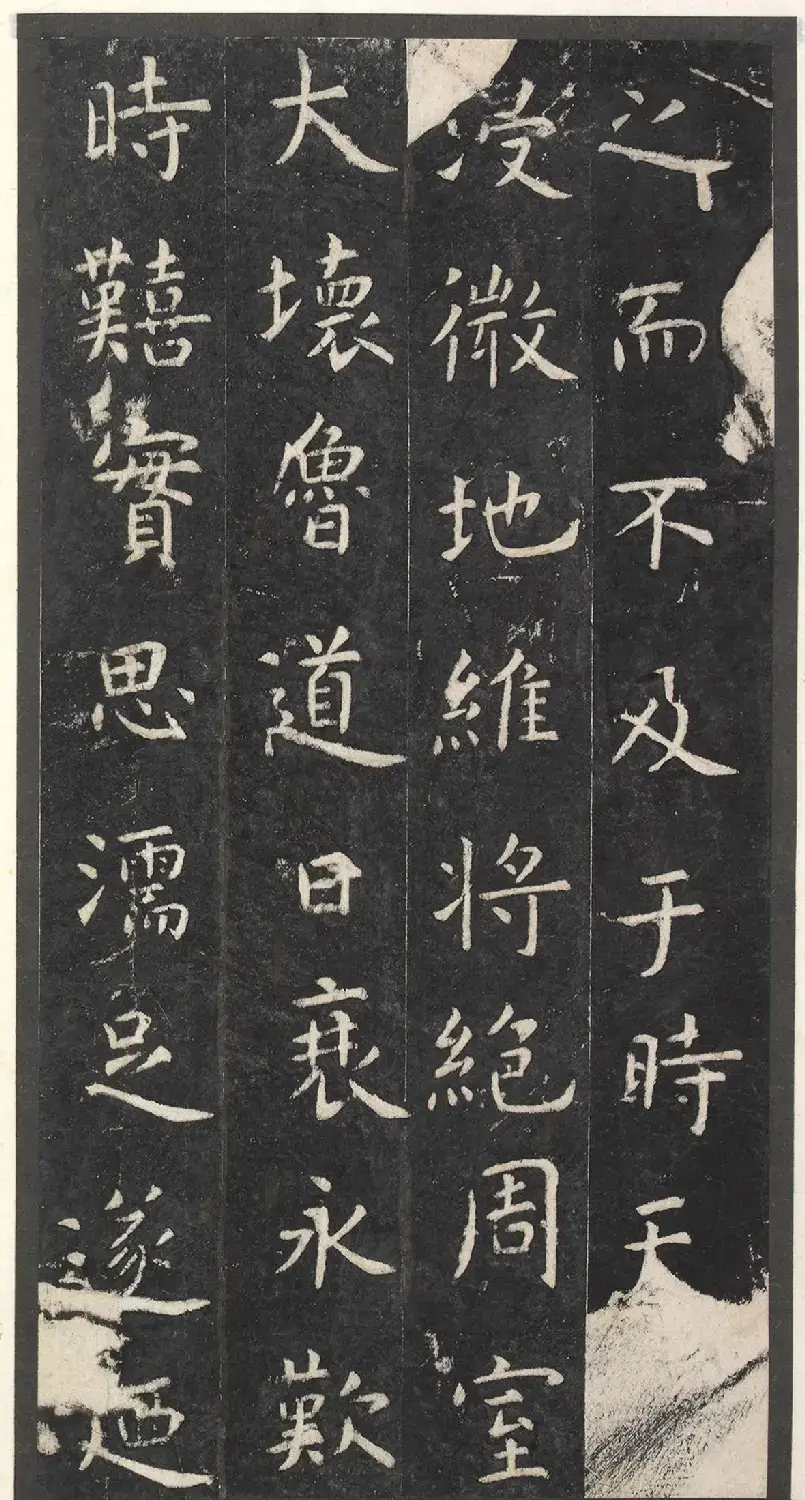 之而不及于時天
浸微地維将絶周室
大壞魯道日衰永歎
時囏實思濡足遂迺